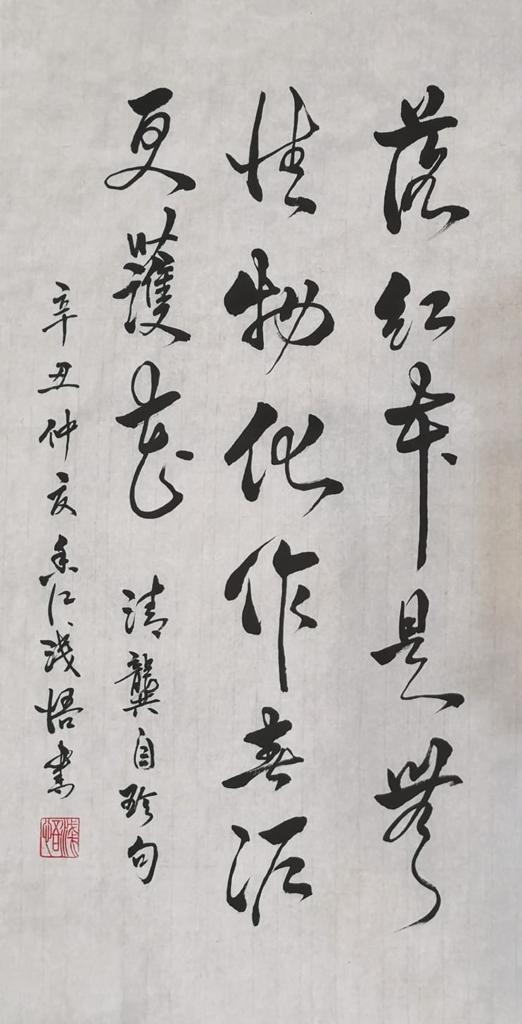 落紅本是無
情物化作春泥
更護花 清龔自珍句
辛丑仲夏香江淺悟書
淺悟